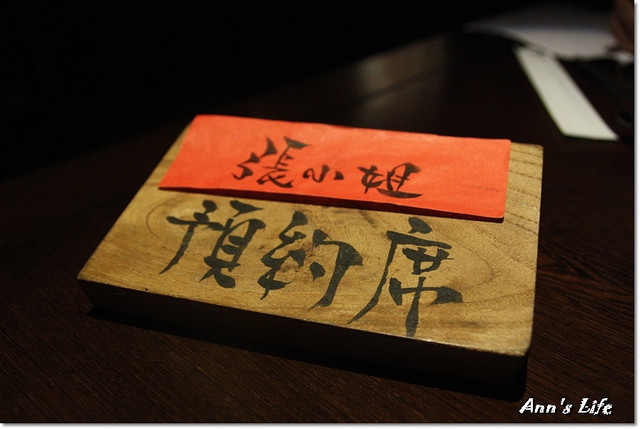 張小姐
預約席
Ann's Life